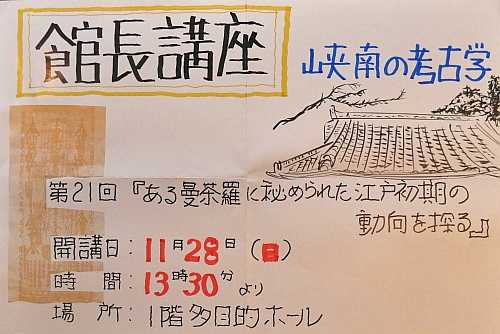 館長講座
峡南の考古学
第21回『ある曼荼羅に秘められた江戸初期の
動向を探る』
開講日：11月28日（日）
時　間：13時30分より
場　所：1階多目的ホール